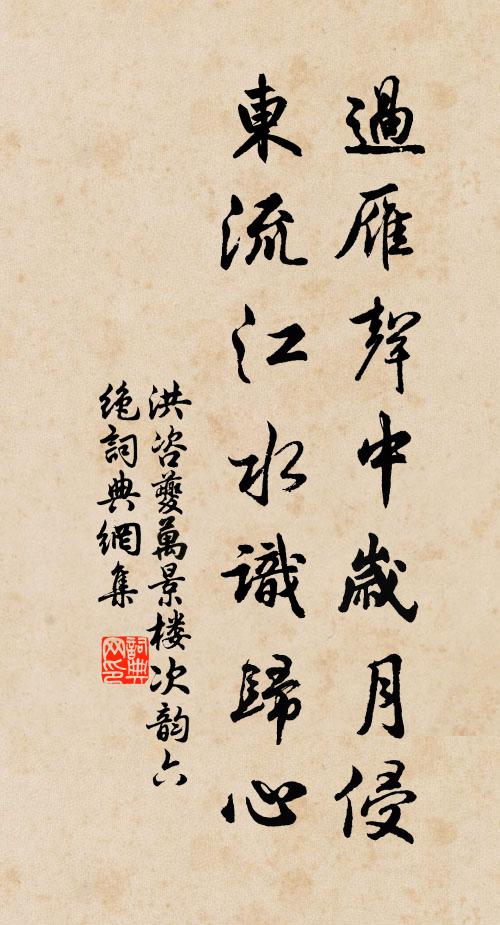 過雁聲中歲月侵
東流江水識歸心
洪咨夔萬景楼次韵六
绝詞典網集
詞典
网印